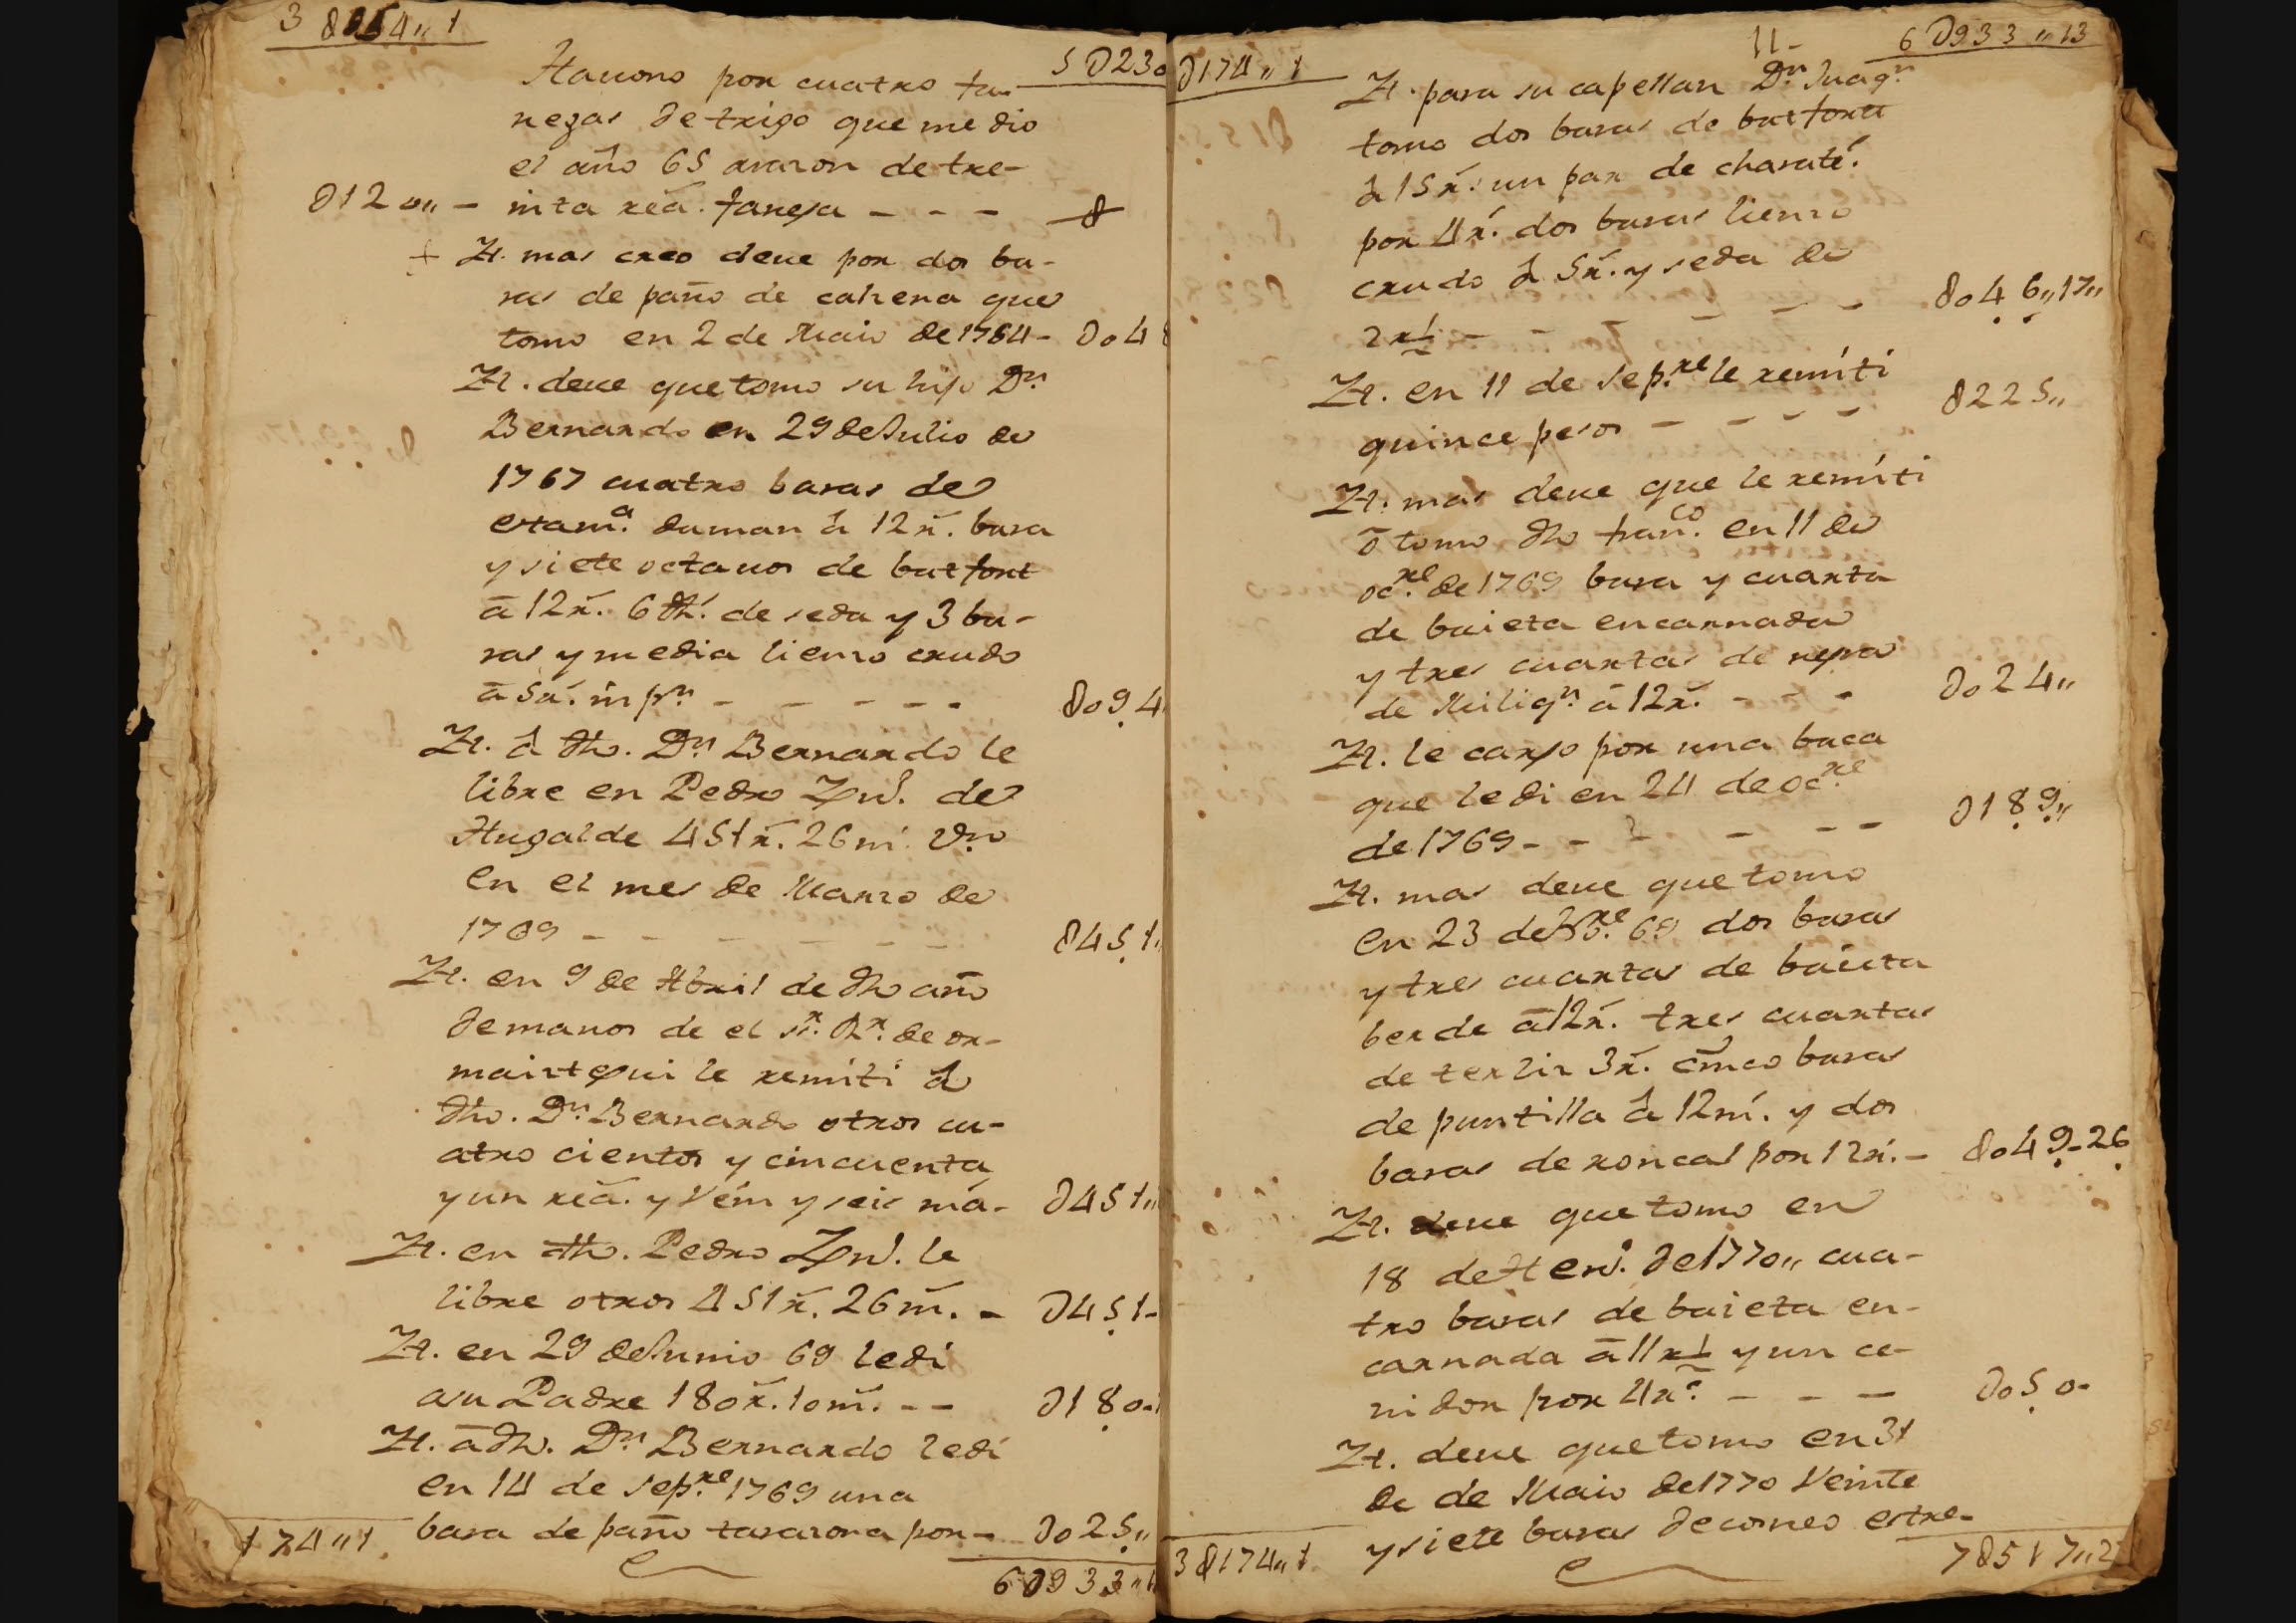 3 8054,, 1
5 D230
Itauono por cuatro fa-
negas de trigo que me dio
el año 65 araron de tre-
D120,, - inta reã. fanega - - -
+ It. mas creo deue por dos ba-
ras de paño de cahena que
tomo en 2 de Maio de 1764 - Do4
It. deue que tomo su hijo Dn.
Bernardo en 29 de Julio de
1767 cuatro baras de
estama. duman â 12 r̃. bara
y siete octauos de batfont
ā 12 r̃. 6 dhs. de seda y 3 ba-
ras y media lienzo crudo
ā 5 r̃. - - - - - Do94
It. â dho. Dn. Bernardo le
libre en Pedro de
Hugalde 451 r̃. 26 m̃.
en el mes de Marzo de
1769 - - - - - - D451,,
It. en 9 de Abril de dho año
de manos de el Sr. Dr. de or-
maiztegui le remiti â
dho. Dn. Bernardo otros cu-
atro cientos y cincuenta
y un reã. y Vein y seis mã- D451,,
It. en dho. Pedro le
libre otros 451 r̃. 26 m̃. - D451-
It. en 29 de Junio 69 le di
a su Padre 180 r̃. 10 m̃. - - D180-1
It. ā dho. Dn. Bernardo le di
en 14 de sepre. 1769 una
bara de paño tarazona por - Do25,,
174,,1
6D933,,1
D174,, 1
11-
6 D933,,13
It. para su capellan Dn. Juaqn.
tomo dos baras de batfona
â 15 r̃. un par de charate.
por 4 r̃. dos baras lienzo
crudo â 5 r̃. y seda de
2 rl - - - - - Do46,,17,,
It. en 11 de Sepre. le remiti
quince pesos - - - - D225,,
It. mas deue que le remiti
ō tomo dho franco. en 11 de
ocre. de 1769 bara y cuarta
de baieta encarnada
y tres cuartas de negra
de Miliqn. ā 12 r̃. - - - Do24,,
It. le cargo por una baca
que le di en 24 de ocre.
de 1769 - - - - - - D189,,
It. mas deue que tomo
en 23 de 69 dos baras
y tres cuartas de baieta
berde ā 12 r̃. tres cuartas
de terliz 3 r̃. cinco baras
de puntilla â 12 m̃. y dos
baras de roncal por 12 r̃. - Do49-26
It. deue que tomo en
18 de Hen. de 1770,, cua-
tro baras de baieta en-
carnada ā 11 rl y un ce-
nidor por 4 r̃. - - - Do50-
It. deue que tomo en 31
de de Maio de 1770 Veinte
y siete baras de corneo estre-
3D174,,1
7D517,,2